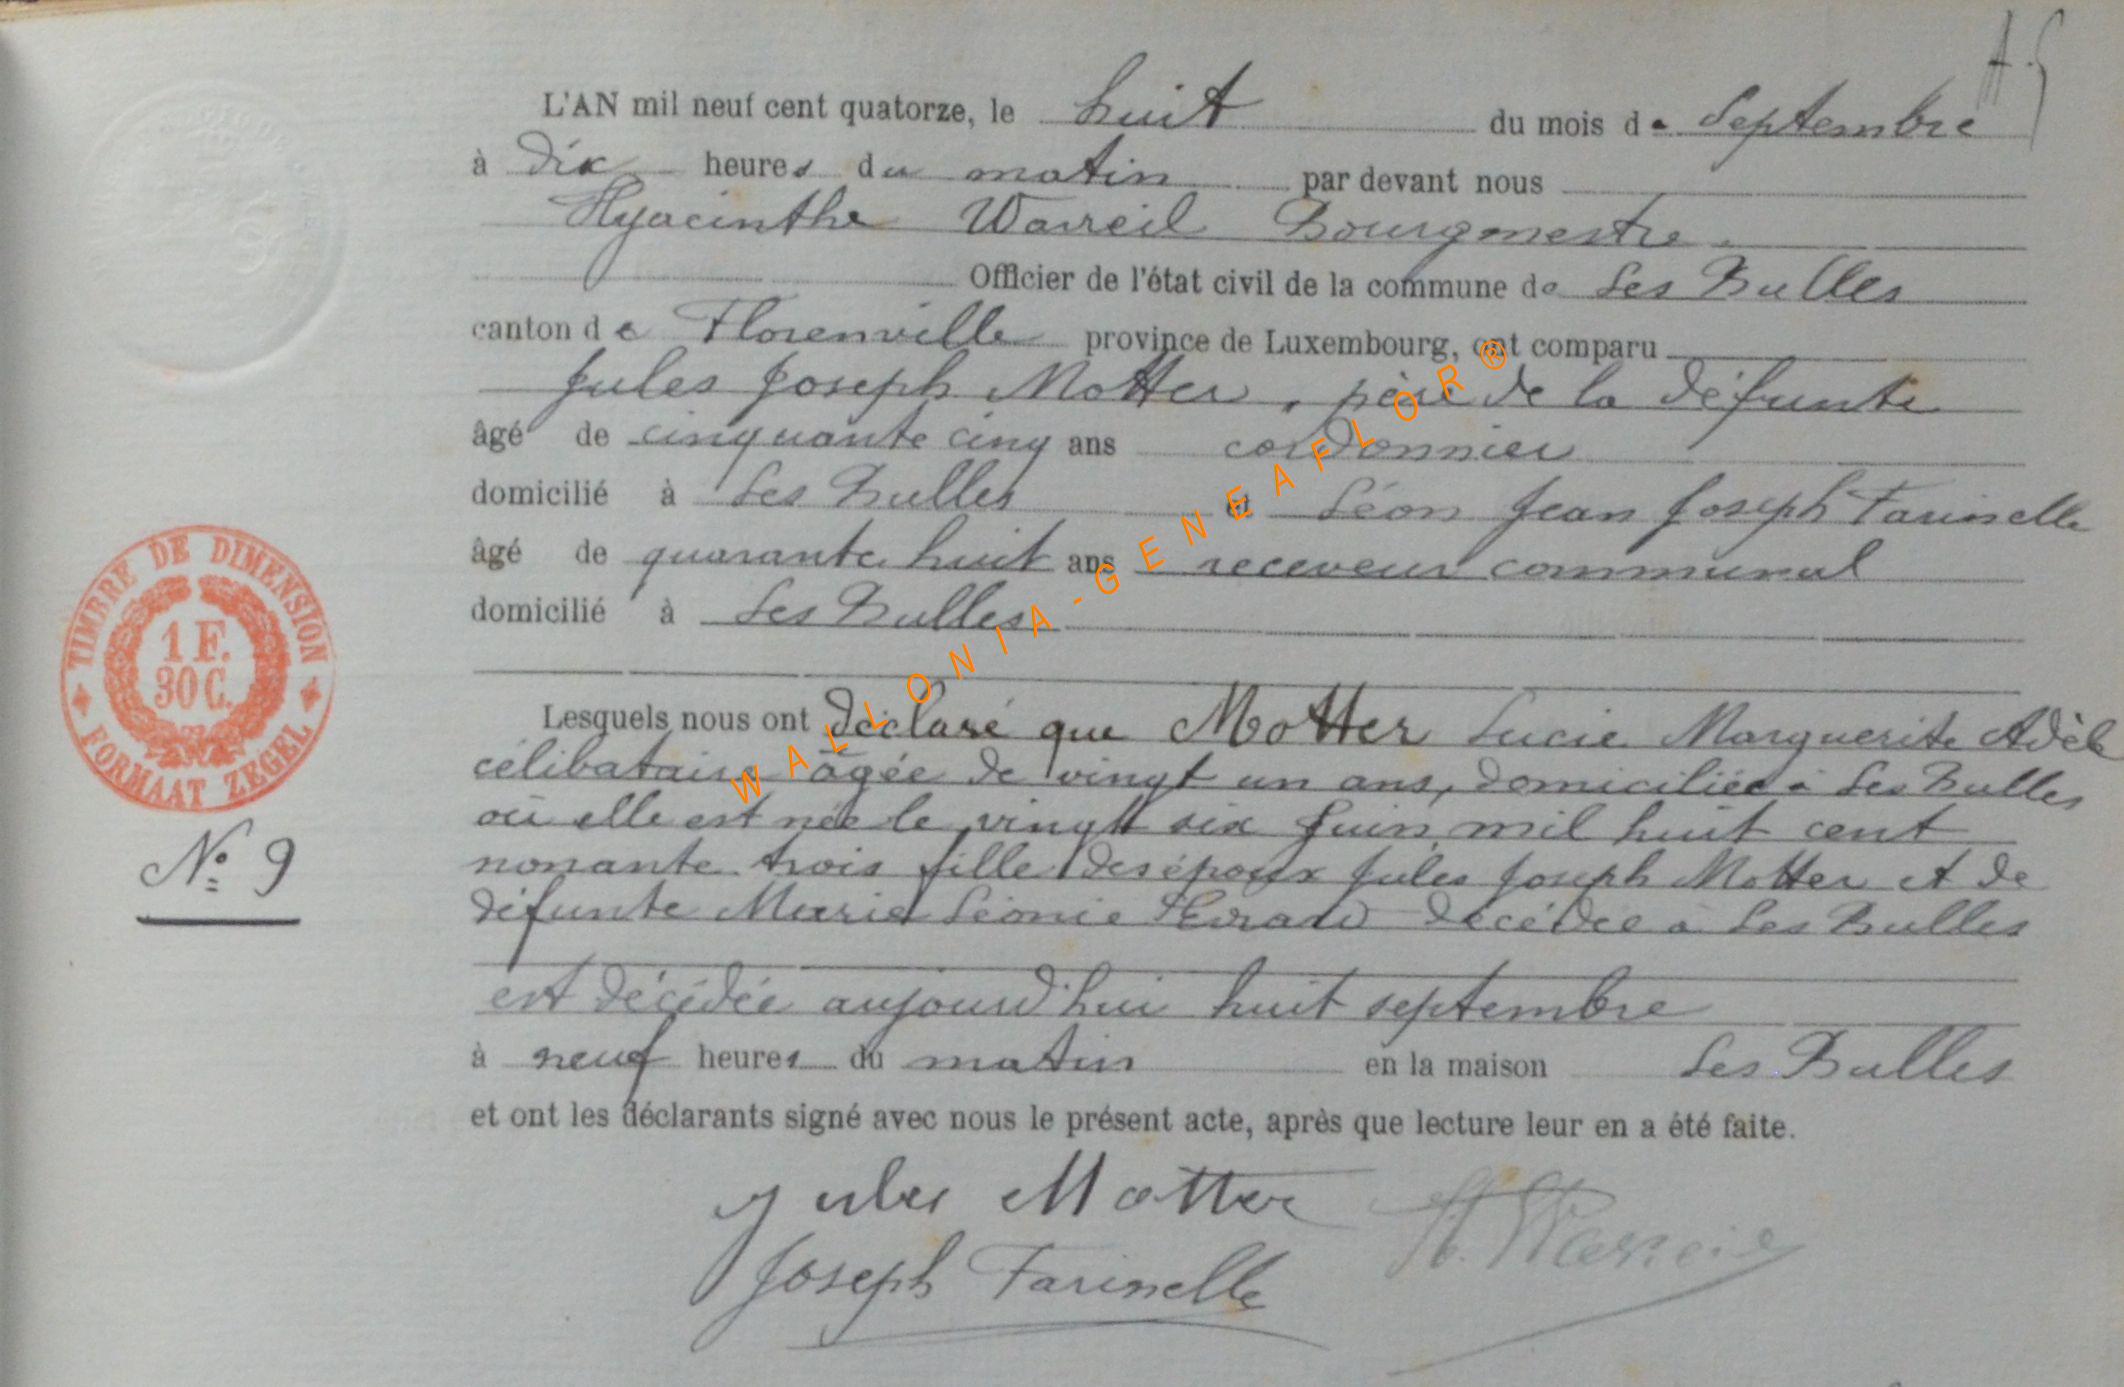 A. S
L'AN mil neuf cent quatorze, le huit du mois de Septembre
à dix heures du matin par devant nous
Hyacinthe Warreil Bourgmestre.
Officier de l'état civil de la commune de Les Bulles
canton de Florenville province de Luxembourg, ont comparu
Jules Joseph Motter, père de la défunte
âgé de cinquante cinq ans cordonnier
domicilié à Les Bulles et Léon Jean Joseph Farinelle
âgé de quarante huit ans receveur communal
domicilié à Les Bulles
Lesquels nous ont déclaré que Motter Lucie Marguerite Adèle
célibataire âgée de vingt un ans, domiciliée à Les Bulles
où elle est née le vingt six Juin mil huit cent
nonante trois fille des époux Jules Joseph Motter et de
défunte Marie Léonie Evrard décédée à Les Bulles
est décédée aujourd'hui huit septembre
à neuf heures du matin en la maison Les Bulles
et ont les déclarants signé avec nous le présent acte, après que lecture leur en a été faite.
Jules Motter
H. Warreil
Joseph Farinelle
TIMBRE DE DIMENSION
1 F.
30 C.
FORMAAT ZEGEL
N° 9
WALLONIA-GENEAFLOR®